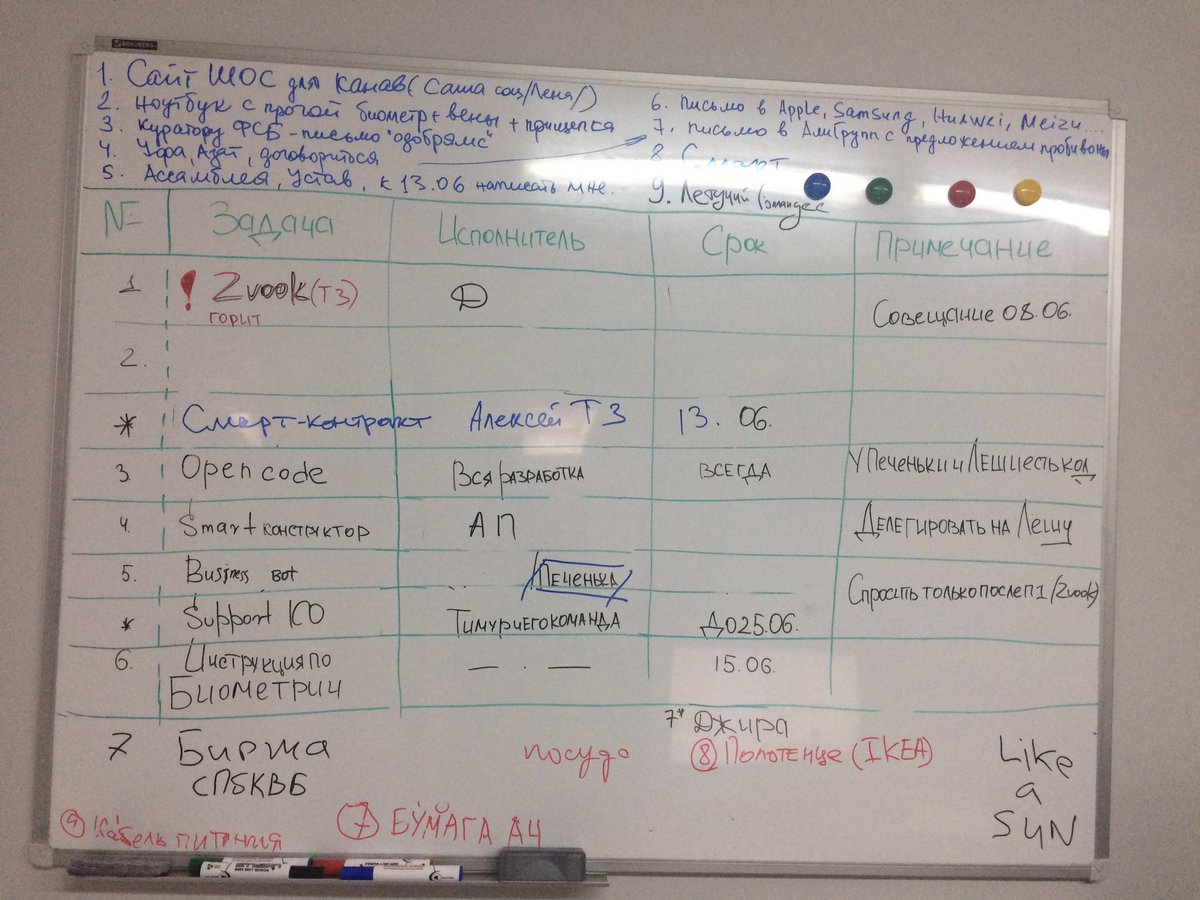 BRAUBERG
1. Сайт ШОС для Канав (Саша соц/Леня/)
2. Ноутбук с прогой биометр + вены + прищепка
3. Куратору ФСБ - письмо "одобрямс"
4. Уфа, Азат, договориться
5. Ассамблея, Устав, к 13.06 написать мне.
6. Письмо в Apple, Samsung, Huawei, Meizu....
7. письмо в АлиГрупп с предложением пробивоны
8.
9. Летучий
№ Задача Исполнитель Срок Примечание
1 ! Zvook (ТЗ) D Совещание 08.06.
горит
2.
* Смарт-контракт Алексей ТЗ 13. 06.
3. Open code Вся разработка ВСЕГДА У Печеньки и Лёши есть кол
4. Smart конструктор АП Делегировать на Лёшу
5. Business bot Печенька Спросить только после п1 (Zvook)
* Support ICO Тимур и его команда До 25.06.
6. Инструкция по — . — 15.06.
Биометрии
7* Джира
7 Биржа посуда ⑧ Полотенце (IKEA) Like
СПБКВБ a
SUN
⑨ Кабель питания ⑦ БУМАГА А4